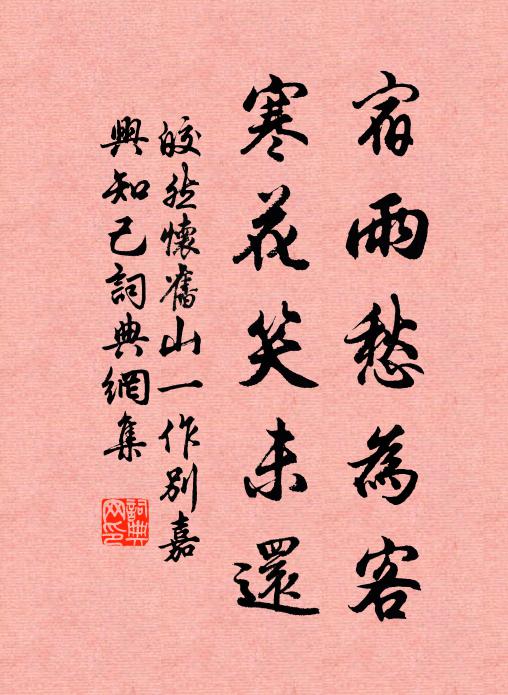 宿雨愁為客
寒花笑未還
皎然懷舊山一作別嘉
興知己詞典網集
詞典
网印